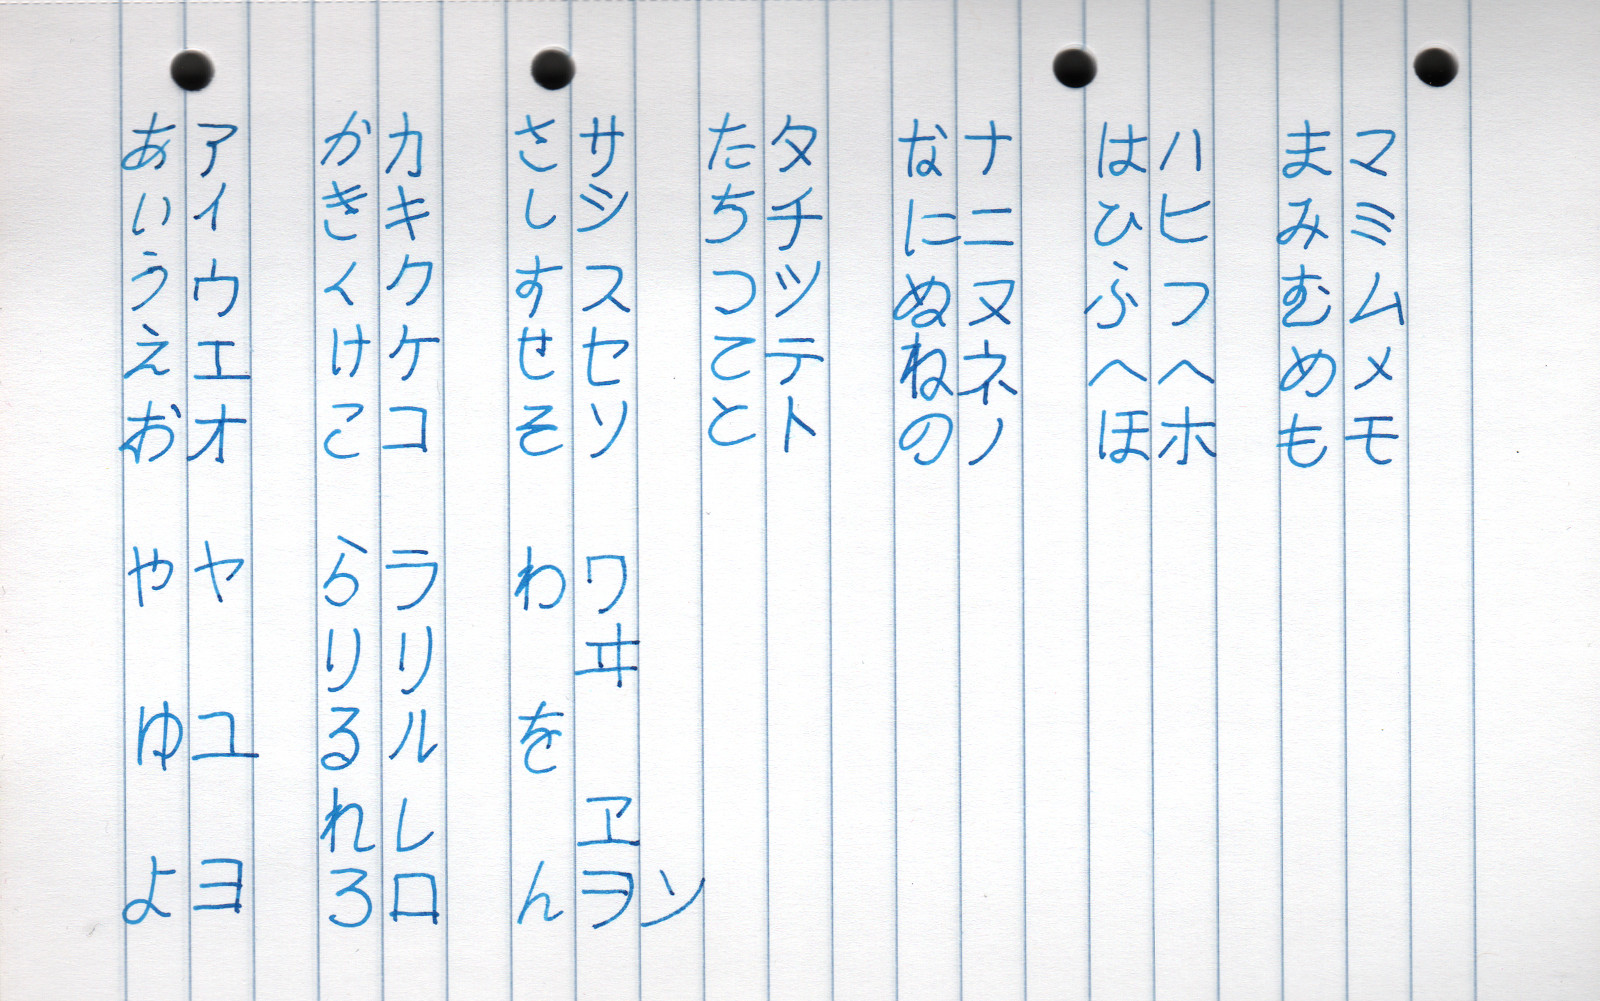 あいうえお
アイウエオ
かきくけこ
カキクケコ
さしすせそ
サシスセソ
たちつてと
タチツテト
なにぬねの
ナニヌネノ
はひふへほ
ハヒフヘホ
まみむめも
マミムメモ
やゆよ
ヤユヨ
らりるれろ
ラリルレロ
わをん
ワヰヱヲ
ン